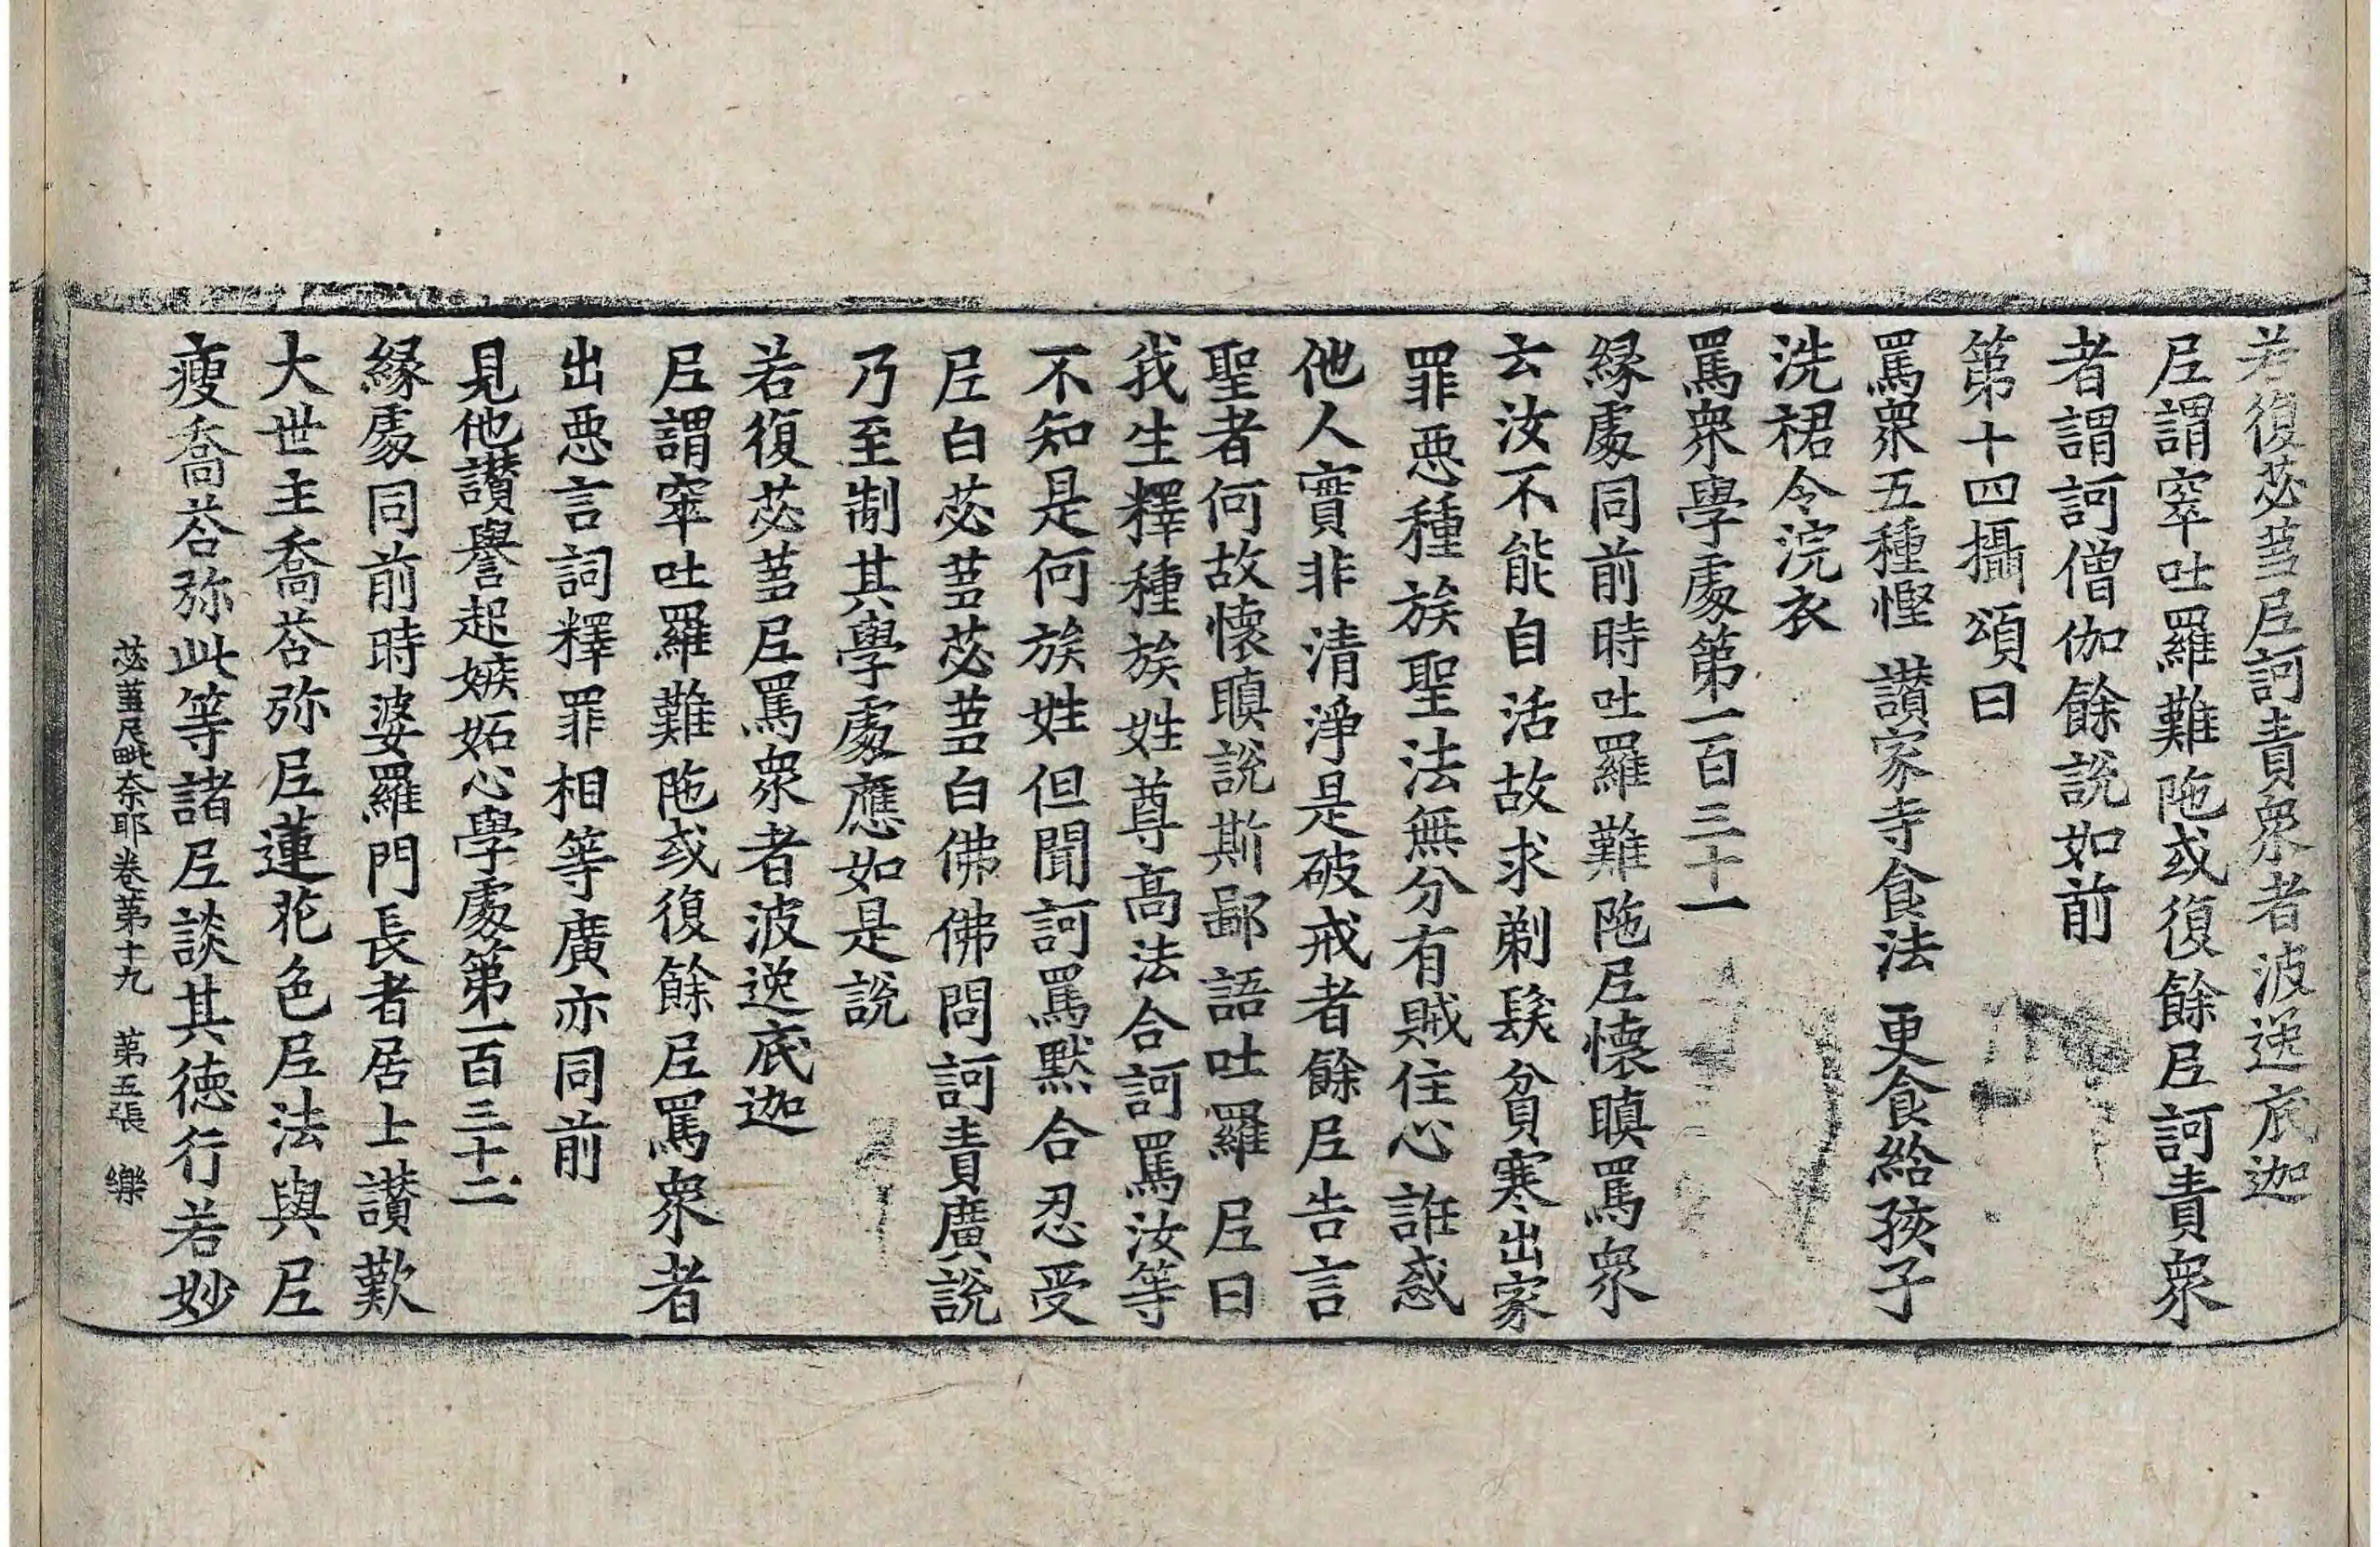 若復苾蒭尼訶責衆者波逸底迦
尼謂窣吐羅難陁或復餘尼訶責衆
者謂訶僧伽餘說如前
第十四攝頌曰
罵衆五種慳 讃家寺食法 更食給孩子
洗裙令浣衣
罵衆學處第一百三十一
緣處同前時吐羅難陁尼懷瞋罵衆
云汝不能自活故求剃髮貧寒出家
罪惡種族聖法無分有賊住心誰惑
他人實非清淨是破戒者餘尼告言
聖者何故懷瞋說斯鄙語吐羅尼曰
我生釋種族姓尊高法合訶罵汝等
不知是何族姓但聞訶罵默合忍受
尼白苾蒭苾蒭白佛佛問訶責廣說
乃至制其學處應如是說
若復苾蒭尼罵衆者波逸底迦
尼謂窣吐羅難陁或復餘尼罵衆者
出惡言詞釋罪相等廣亦同前
見他讃譽起嫉妬心學處第一百三十二
緣處同前時婆羅門長者居士讃歎
大世主喬荅弥尼蓮花色尼法與尼
瘦喬荅弥此等諸尼談其德行若妙
苾蒭尼毗奈耶卷第十九 第五張 樂